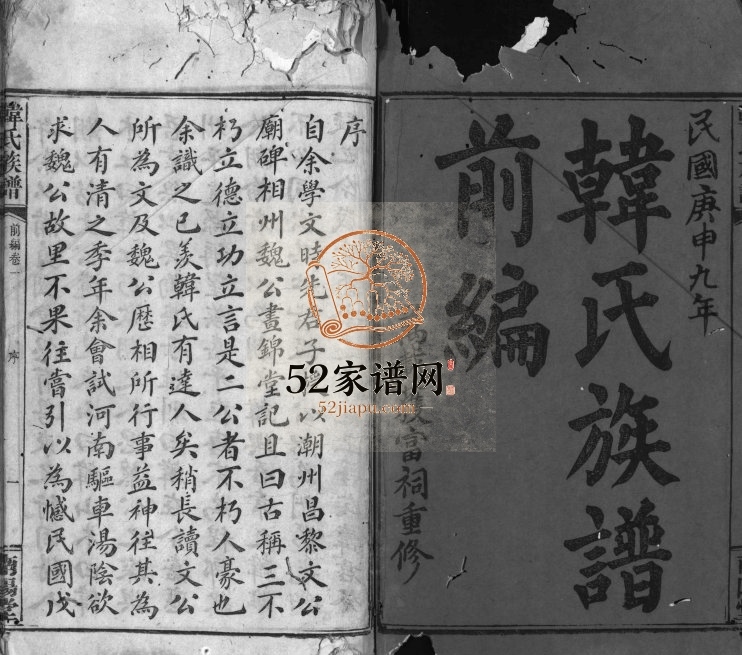 民國庚申九年
韓氏族譜
前編
富祠重修
序
自余學文時先君子 以潮州昌黎文公
廟碑相州魏公晝錦堂記且曰古稱三不
朽立德立功立言是二公者不朽人豪也
余識之已羨韓氏有達人矣稍長讀文公
所為文及魏公歷相所行事益神往其為
人有清之季年余會試河南驅車湯陰欲
求魏公故里不果往嘗引以為憾民國戊
韓氏族譜
前編卷一
序
一
52家谱网
52jiapu.com